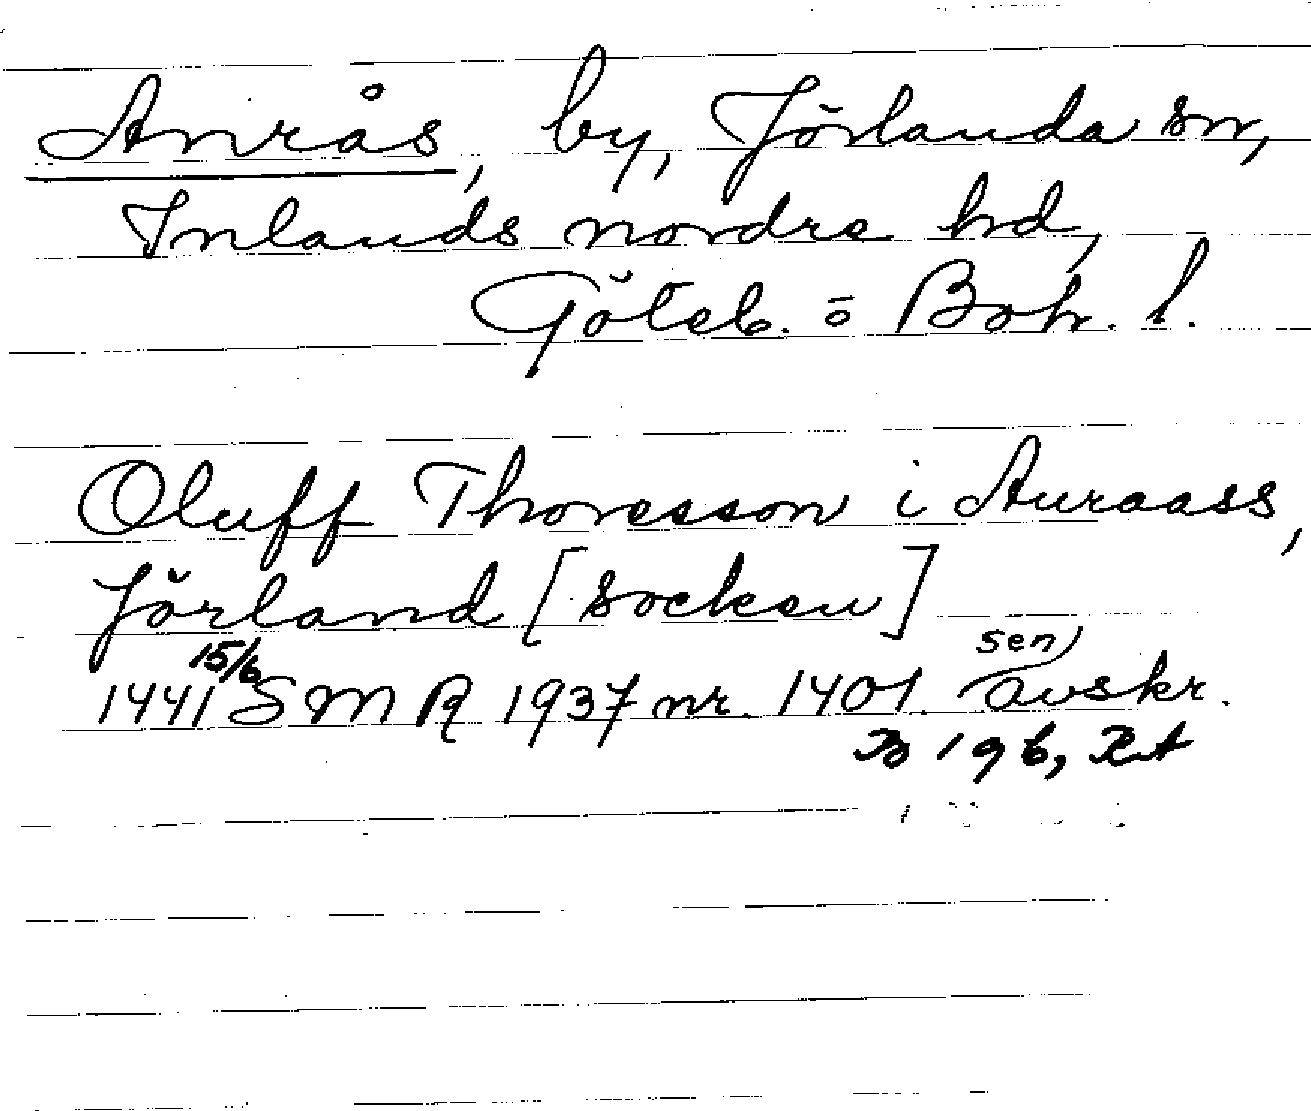 Anrås, by, Jörlanda sn,
Inlands nordre hd,
Göteb. o Boh. l.
Oluff Thoresson i Auraass,
Jörland [socken]
1441 15/6 SMR 1937 nr. 1401. sen avskr.
B 196, RA